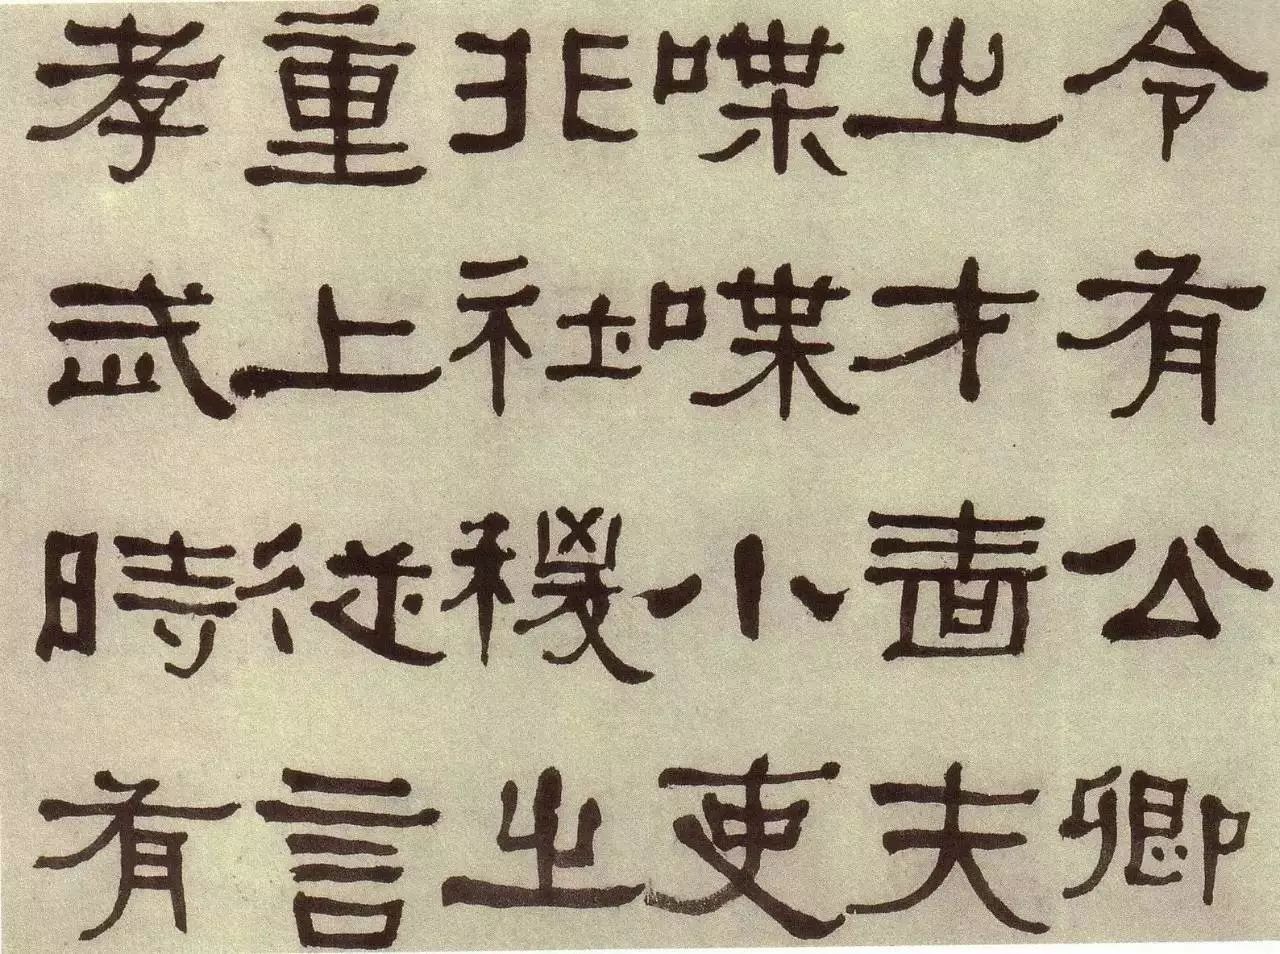 令有公卿
之才嗇夫
喋喋小吏
非社稷之
重上從言
孝武時有